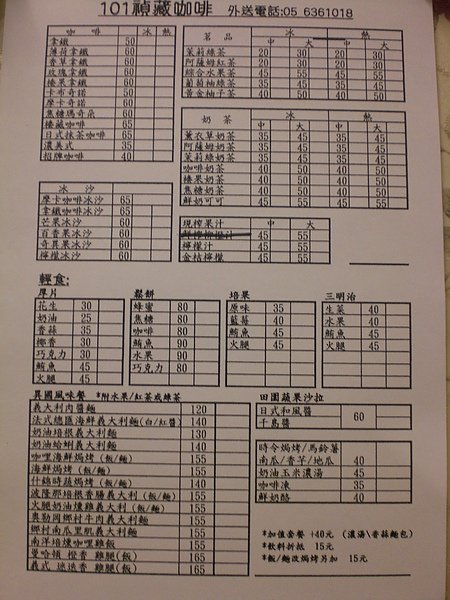 101禎藏咖啡 外送電話:05 6361018
咖 啡 冰 熱
拿鐵 50
薄荷拿鐵 60
香草拿鐵 60
玫瑰拿鐵 60
榛果拿鐵 60
卡布奇諾 50
摩卡奇諾 60
焦糖瑪奇朵 60
禎藏咖啡 65
日式抹茶咖啡 65
濃美式 35
招牌咖啡 40
茗 品 冰 熱
中 大 中 大
茉莉綠茶 20 30 20 30
阿薩姆紅茶 20 30 20 30
綜合水果茶 45 55 45 55
葡萄柚綠茶 35 45 35 45
黃金柚子茶 40 50 40 50
奶 茶 冰 熱
中 大 中 大
薰衣草奶茶 35 45 35 45
阿薩姆奶茶 35 45 35 45
茉莉奶茶 35 45 35 45
咖啡奶茶 40 50 40 50
榛果奶茶 40 50 40 50
焦糖奶茶 40 50 40 50
鮮奶可可 45 55 45 55
冰 沙
摩卡咖啡冰沙 65
拿鐵咖啡冰沙 65
芒果冰沙 60
百香果冰沙 60
奇異果冰沙 60
檸檬冰沙 60
現榨果汁 中 大
鮮榨柳橙汁 45 55
檸檬汁 45 55
金桔檸檬 45 55
輕食:
厚片
花生 30
奶油 25
香蒜 35
椰香 30
巧克力 30
鮪魚 45
火腿 45
鬆餅
蜂蜜 80
焦糖 80
咖啡 80
鮪魚 90
水果 90
巧克力 80
培果
原味 35
藍莓 40
鮪魚 45
火腿 45
三明治
生菜 40
水果 40
鮪魚 45
火腿 45
異國風味餐 *附水果/紅茶或綠茶
義大利肉醬麵 120
法式總匯海鮮義大利麵(白/紅醬) 140
奶油培根義大利麵 130
奶油蛤蜊義大利麵 140
咖哩海鮮焗烤(飯/麵) 155
海鮮焗烤(飯/麵) 155
什錦時蔬焗烤(飯/麵) 140
波隆那培根香腸義大利(飯/麵) 155
火腿奶油燻雞義大利(飯/麵) 155
奧勒岡鄉村牛肉義大利麵 155
鄉村南瓜里肌義大利麵 155
南洋培燻咖哩雞 155
曼哈頓 橙香 雞腿(飯) 165
義式 迷迭香 雞腿(飯) 165
田園蘋果沙拉
日式和風醬 60
千島醬
時令焗烤/馬鈴薯
南瓜/香芋/地瓜 40
奶油玉米濃湯 45
咖啡凍 35
鮮奶酪 40
*加值套餐 +40元 (濃湯\香蒜麵包)
*飲料折抵 15元
*飯/麵改焗烤另加 15元